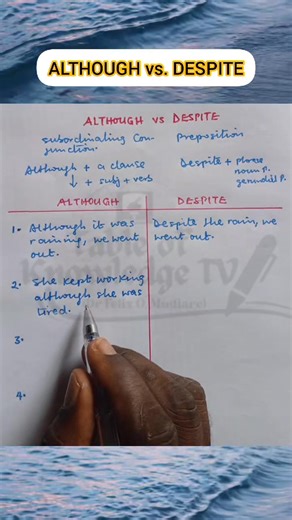 ALTHOUGH vs. DESPITE
ALTHOUGH VS DESPITE
subordinating Con-
junction.
Preposition
Although + a clause
↓ + subj + verb
Despite + phrase
noun p.
gerundial p.
ALTHOUGH
DESPITE
1. Although it was
raining, we went
out.
Despite the rain, we
went out.
2. She kept working
although she was
tired.
3.
4.
Table of
Knowledge TV